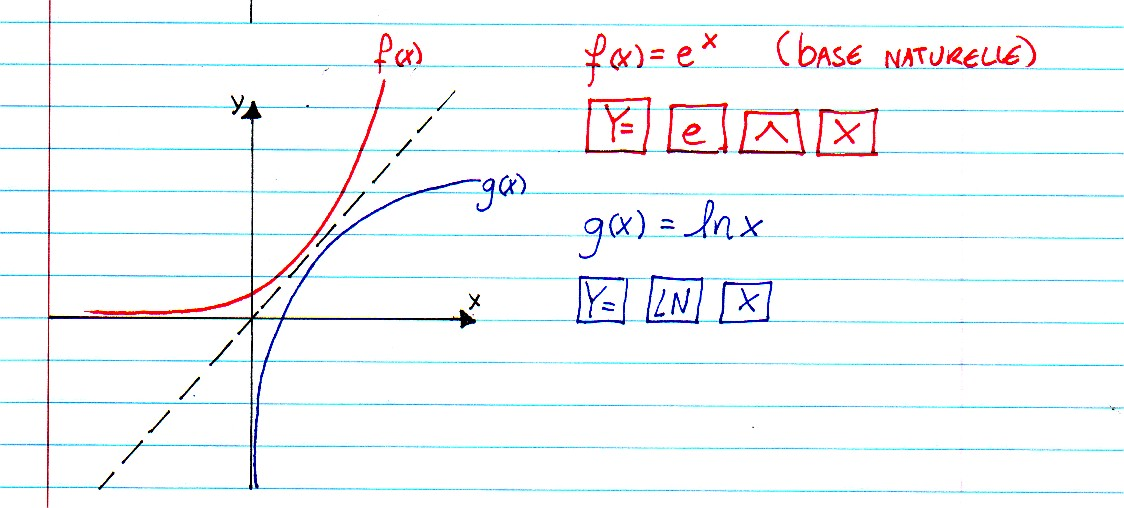 f(x)
y
g(x)
x
f(x) = e^x (BASE NATURELLE)
Y= e ^ X
g(x) = ln x
Y= LN X